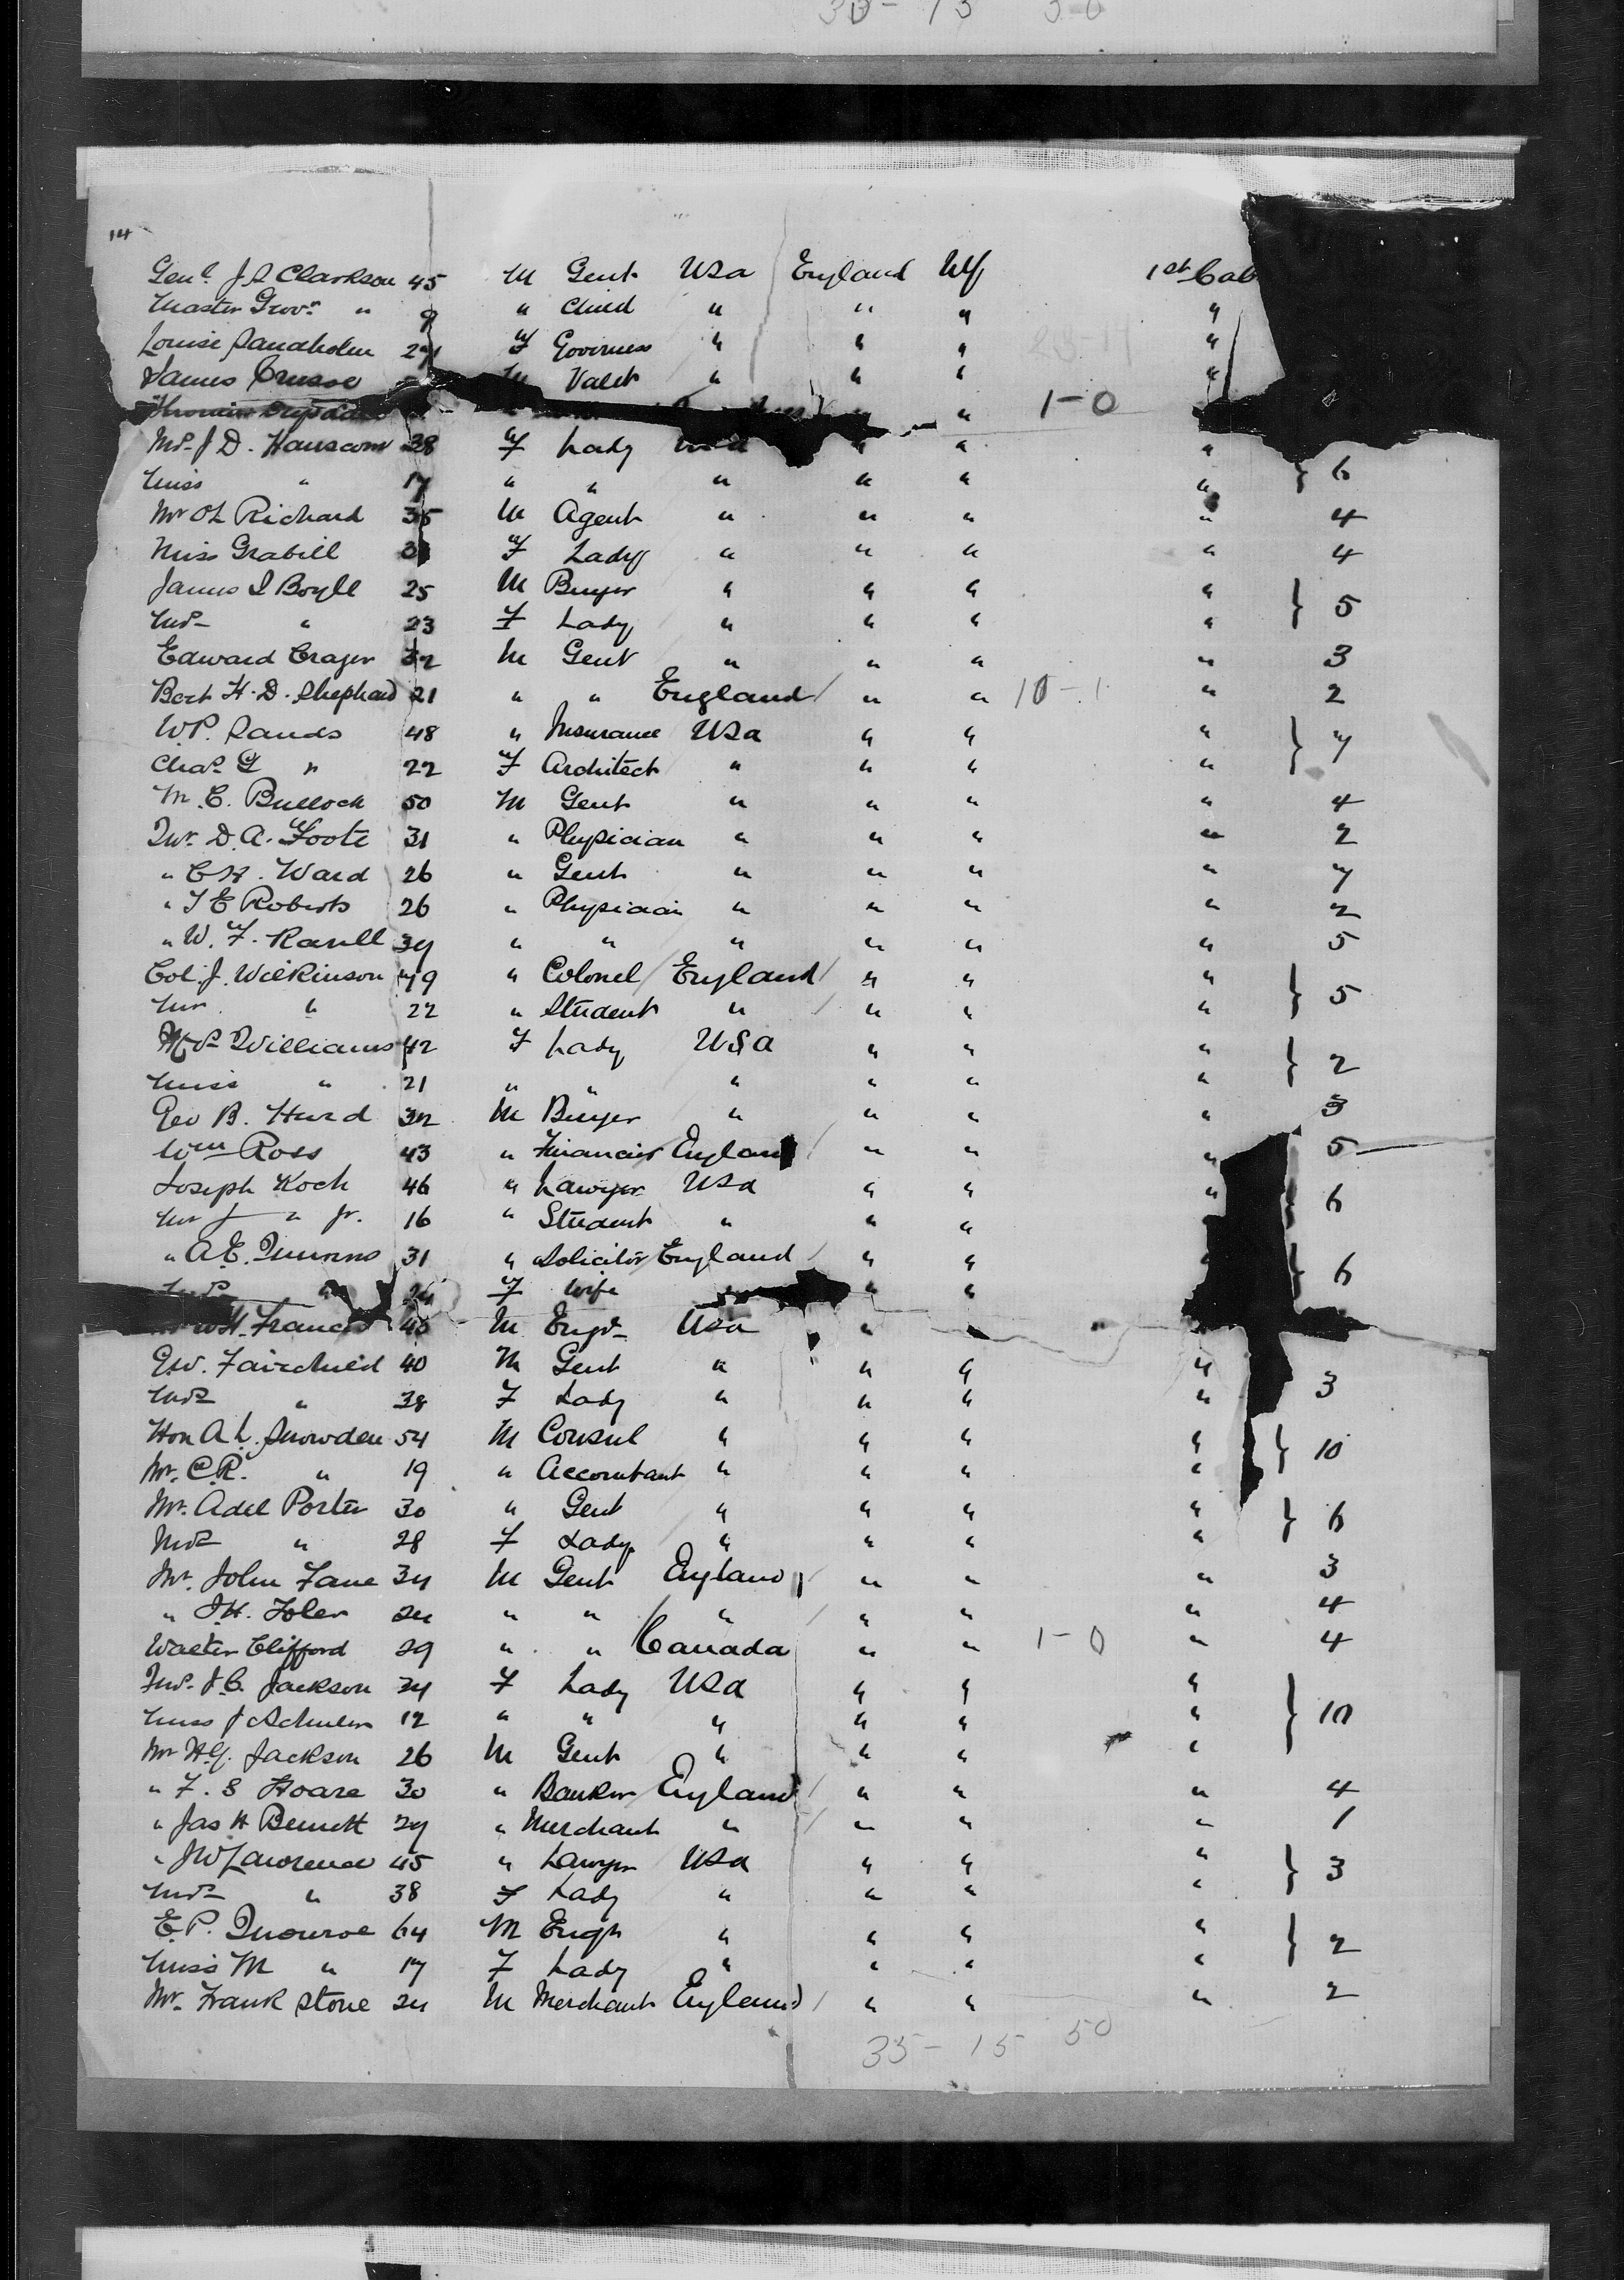 14
Genl. J S Clarkson 45 M Gent USa England NY 1st Cab
Master Grov. " 9 " Child " " " "
Louise Sandholm F Governess " " " "
James Crusse M Valet " " " "
" " 1-0 "
Mrs. J D. Hanscom 38 F Lady " " "
Miss " 17 " " " " " " } 6
Mr Oh Richard 35 M Agent " " " " 4
Miss Grabill F Lady " " " " 4
James I Boyle 25 M Buyer " " " "
Mrs " 23 F Lady " " " " } 5
Edward Crager 32 M Gent " " " " 3
Bert H. D. Shephard 21 " " England " " 10-1 " 2
W.P. Sands 48 " Insurance USa " " "
Chas. G " 22 F Architect " " " " } 7
M. C. Bullock 50 M Gent " " " " 4
Mr. D. A. Foote 31 " Physician " " " " 2
" C H. Ward 26 " Gent " " " " 7
" T E Roberts 26 " Physician " " " " 2
" W. F. Ravell 34 " " " " " " 5
Col. J. Wilkinson 49 " Colonel England " " "
Mr " 22 " Student " " " " } 5
Mrs Williams 42 F Lady USa " " "
Miss " 21 " " " " " " } 2
Geo B. Hurd 32 M Buyer " " " " 3
Wm Ross 43 " Financier England " " " 5
Joseph Koch 46 " Lawyer USa " " "
Mr J " Jr. 16 " Student " " " 6
" A.E. 31 " Solicitor England " "
Mrs " F Wife " " } 6
W.H. Francis M Engr USa " "
G.W. Fairchild 40 M Gent " " " "
Mrs " 38 F Lady " " " " 3
Hon A. L. Snowden 54 M Consul " " " "
Mr. C.R. " 19 " Accountant " " " " } 10
Mr. Adel Porter 30 " Gent " " " "
Mrs " 28 F Lady " " " " } 6
Mr. John Fane 34 M Gent England " " " 3
" J.H. Toler 24 " " " " " " 4
Walter Clifford 29 " " Canada " " 1-0 " 4
Mrs. J. C. Jackson 34 F Lady USa " " "
Miss J Schuler 12 " " " " " " } 10
Mr H.Y. Jackson 26 M Gent " " " "
" F. S Hoare 30 " Banker England " " " 4
" Jas H Bennett 29 " Merchant " " " " 1
" J W Lawrence 45 " Lawyer USa " " "
Mrs " 38 F Lady " " " " } 3
E. P. Monroe 64 M Engr " " " "
Miss M " 17 F Lady " " " " } 2
Mr. Frank Stone 24 M Merchant England " " " 2
35- 15 50